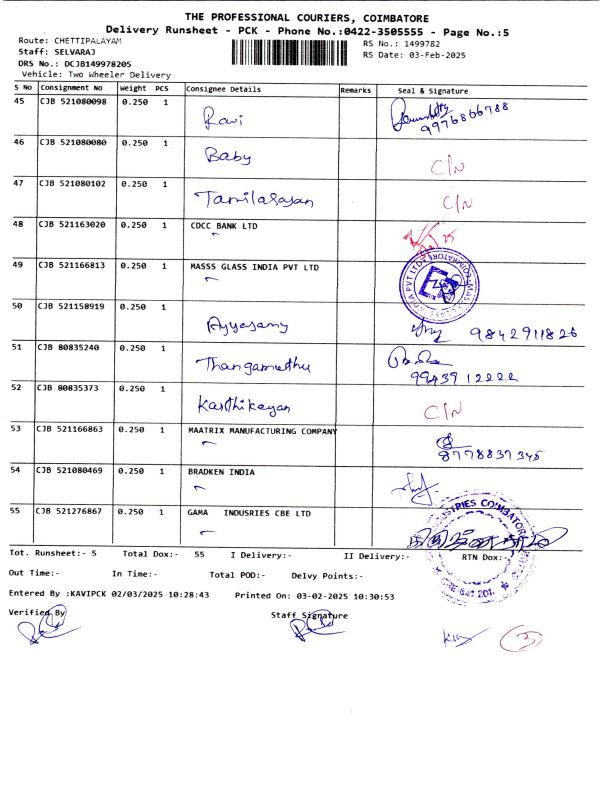 THE PROFESSIONAL COURIERS, COIMBATORE
Delivery Runsheet - PCK - Phone No.:0422-3505555 - Page No.:5
Route: CHETTIPALAYAM RS No.: 1499782
Staff: SELVARAJ RS Date: 03-Feb-2025
DRS No.: DCJB149978205
Vehicle: Two Wheeler Delivery
S No Consignment No Weight PCS Consignee Details Remarks Seal & Signature
45 CJB 521080098 0.250 1 Ravi 9976866788
46 CJB 521080080 0.250 1 Baby C/N
47 CJB 521080102 0.250 1 Tamilarasan C/N
48 CJB 521163020 0.250 1 CDCC BANK LTD
49 CJB 521166813 0.250 1 MASSS GLASS INDIA PVT LTD
50 CJB 521158919 0.250 1 Ayyasamy 9842911826
51 CJB 80835240 0.250 1 Thangamuthu 9943912222
52 CJB 80835373 0.250 1 Karthikeyan C/N
53 CJB 521166863 0.250 1 MAATRIX MANUFACTURING COMPANY 8778837345
54 CJB 521080469 0.250 1 BRADKEN INDIA
55 CJB 521276867 0.250 1 GAMA INDUSRIES CBE LTD
Tot. Runsheet:- 5 Total Dox:- 55 I Delivery:- II Delivery:- RTN Dox:-
Out Time:- In Time:- Total POD:- Delvy Points:-
Entered By :KAVIPCK 02/03/2025 10:28:43 Printed On: 03-02-2025 10:30:53
Verified By Staff Signature
3